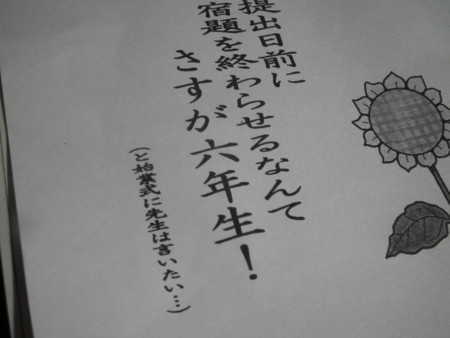 提出日前に
宿題を終わらせるなんて
さすが六年生！
（と始業式に先生は言いたい…）